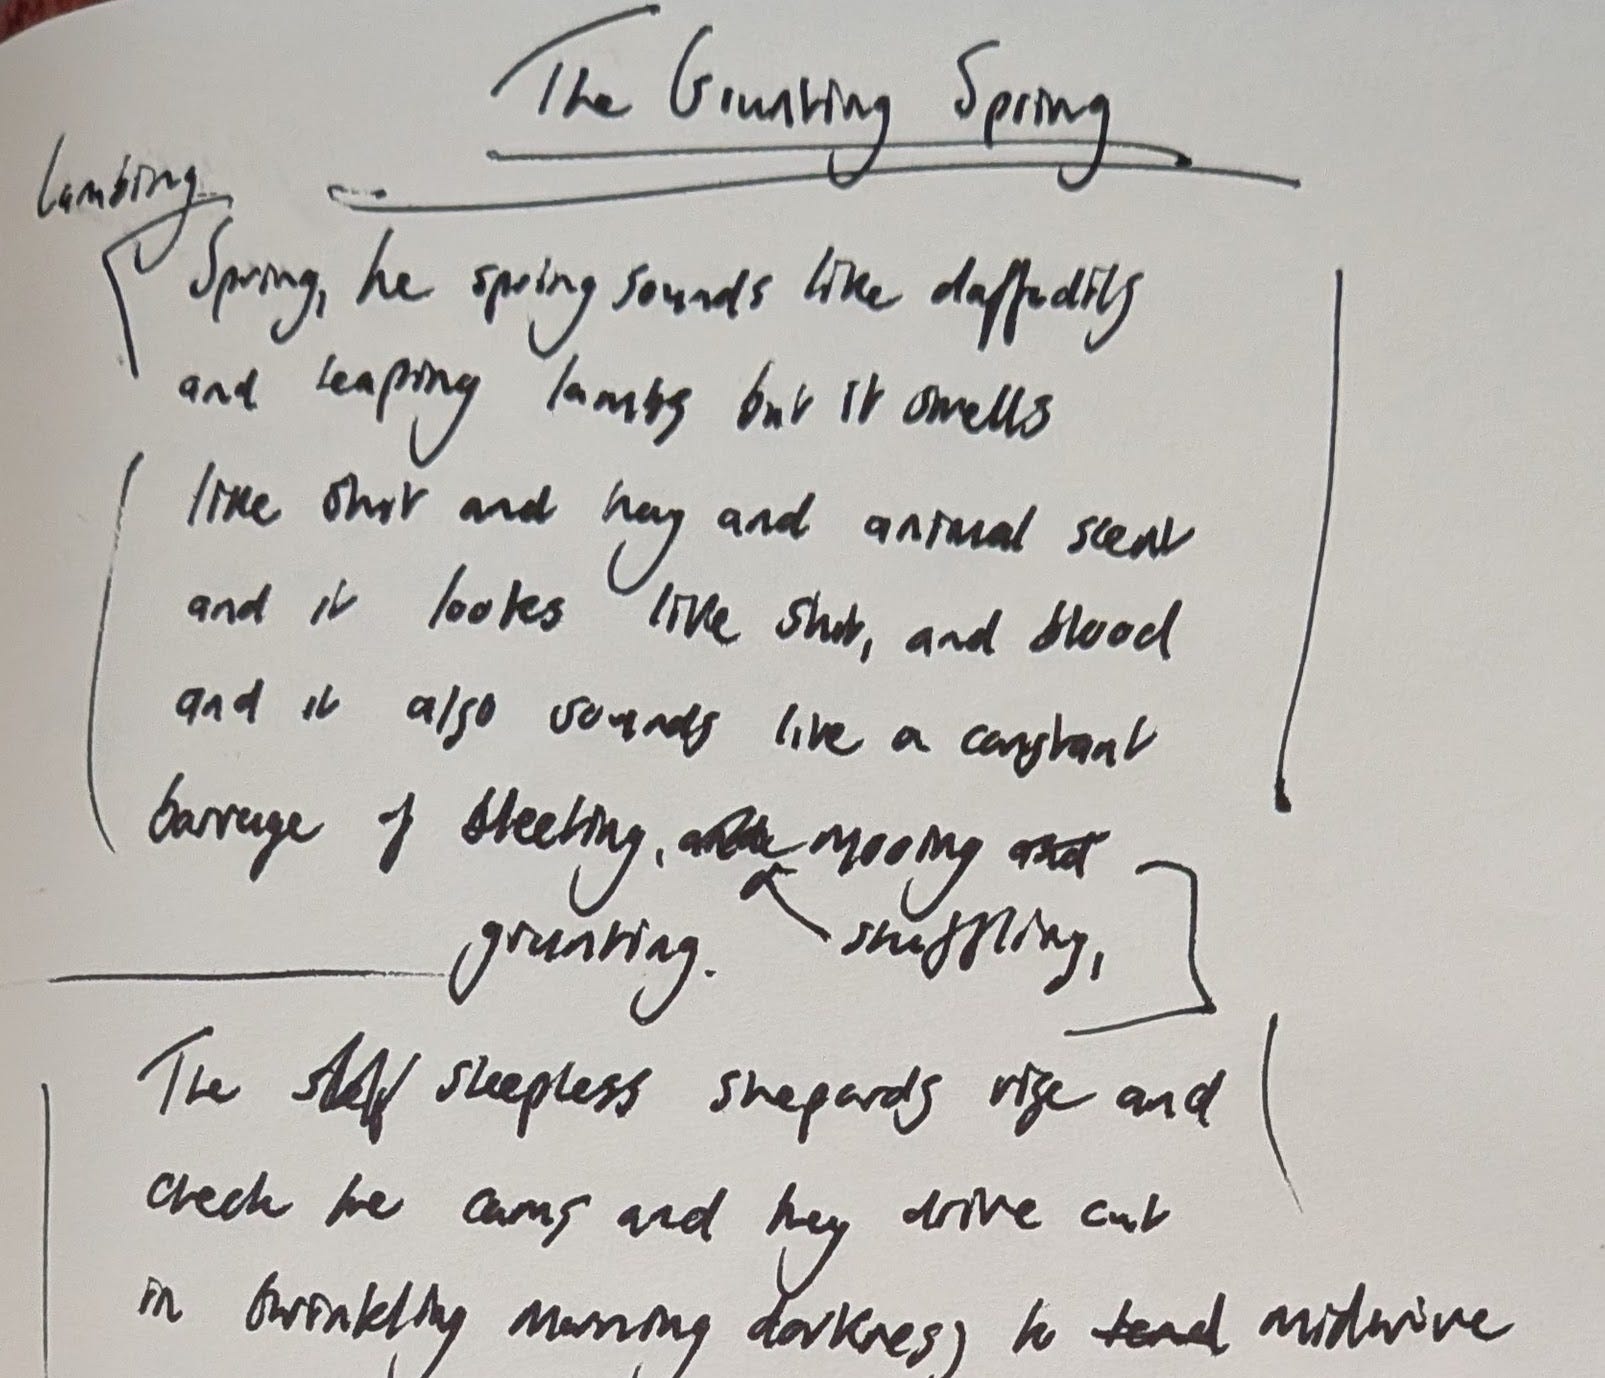 The Grunting Spring
Lambing
Spring, the spring sounds like daffodils
and leaping lambs but it smells
like shit and hay and animal scent
and it looks like shit, and blood
and it also sounds like a constant
barrage of bleeting, mooing and
grunting. snuffling,
The sleepless shepards rise and
check the cams and they drive out
in twinkling morning darkness, to tend midwive